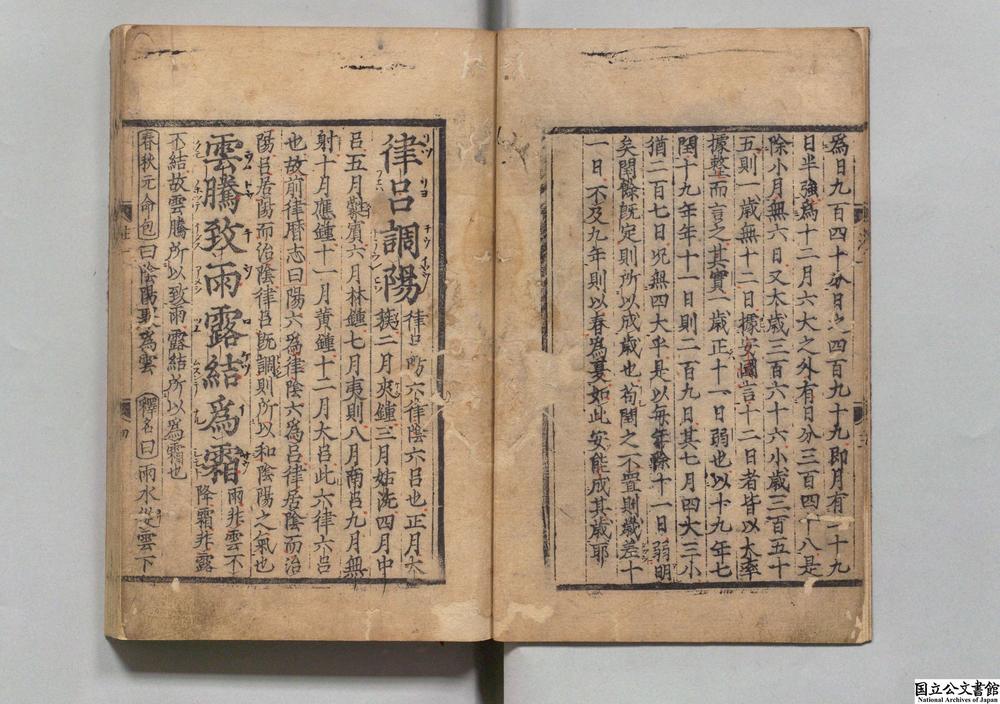 為日九百四十分日之四百九十九即月有二十九
日半強為十二月六大之外有日分三百四十八是
除小月無六日又大歲三百六十六小歲三百五十
五則一歲無十二日據安國言十二日者皆以大率
據整而言之其實一歲正十一日弱也以十九年七
閏十九年年十一日則二百九日其七月四大三小
猶二百七日況無四大乎是以每年餘十一日弱明
矣閏餘既定則所以成歲也苟閏之不置則歲差十
一日不及九年則以春為夏如此安能成其歲耶
律呂調陽
律呂 陽六律陰六呂也正月太
簇二月夾鍾三月姑洗四月中
呂五月蕤賓六月林鍾七月夷則八月南呂九月無
射十月應鍾十一月黃鍾十二月大呂此六律六呂
也故前律曆志曰陽六為律陰六為呂律居陰而治
陽呂居陽而治陰律呂既調則所以和陰陽之氣也
雲騰致雨露結為霜
雨非雲不
降霜非露
不結故雲騰所以致雨露結所以為霜也
春秋元命包曰陰陽聚為雲 釋名曰雨水從雲下
四
国立公文書館
National Archives of Japan